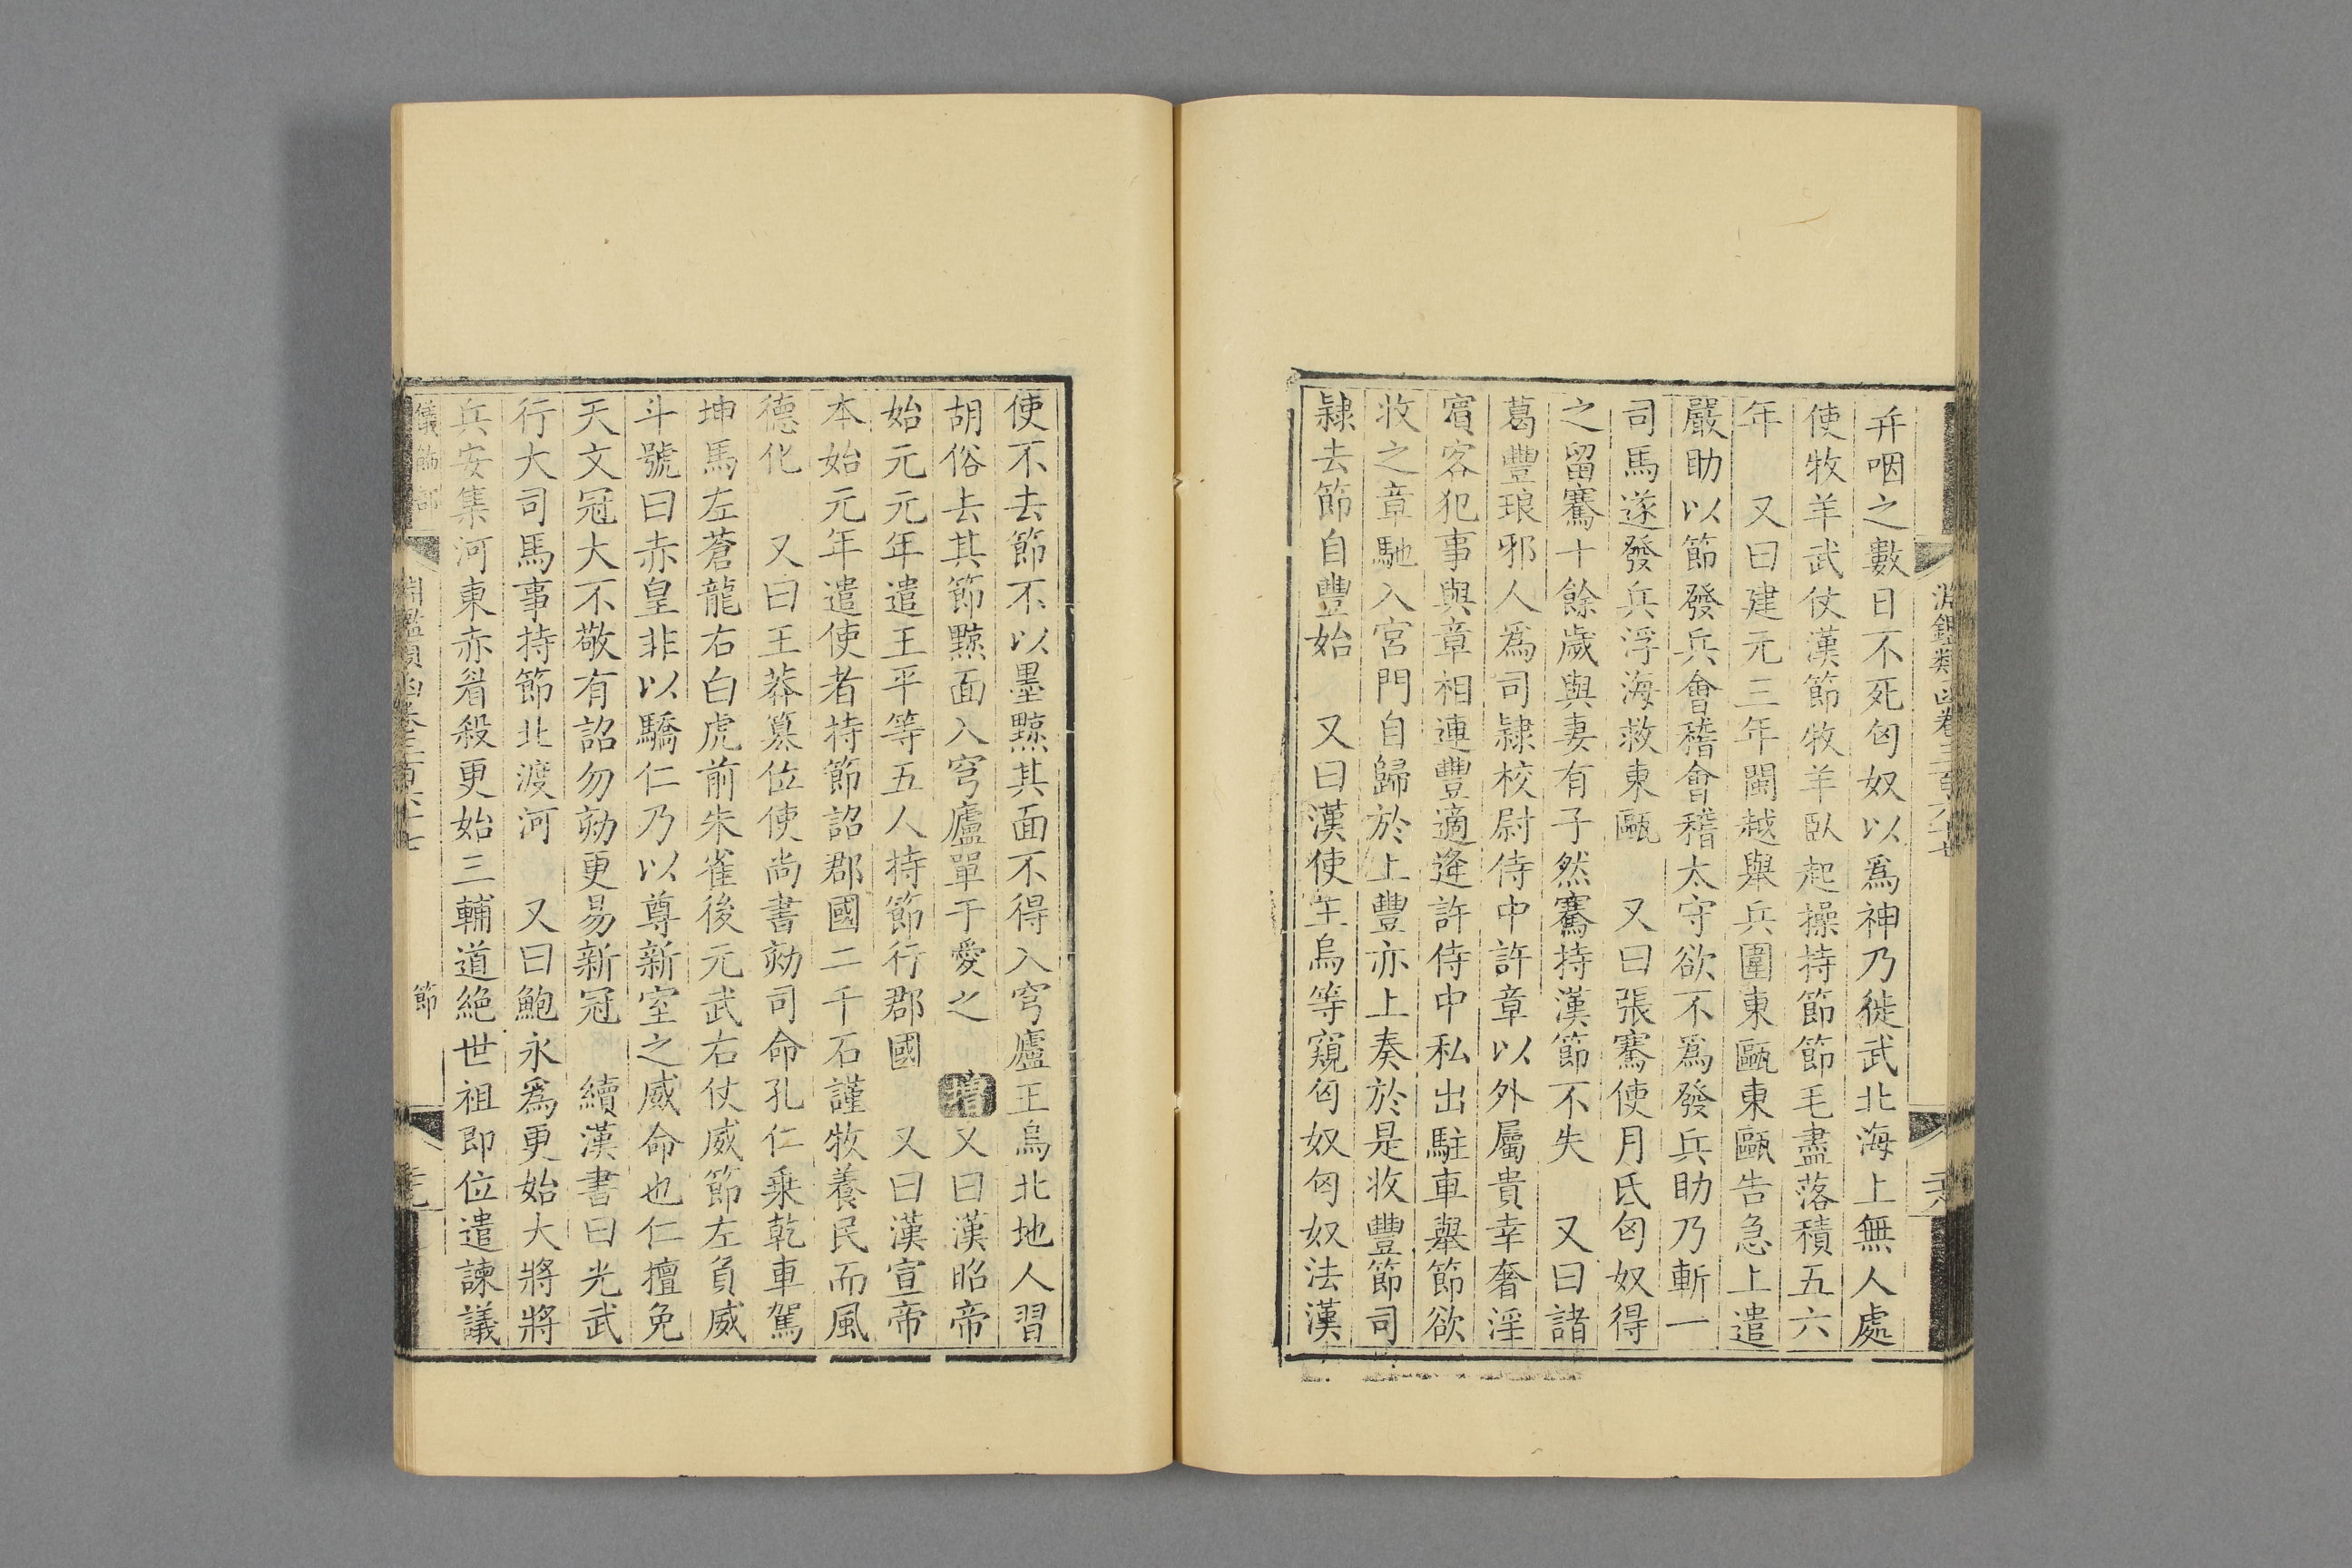 淵鑑類函卷三百六十七
并咽之數日不死匈奴以爲神乃徙武北海上無人處
使牧羊武仗漢節牧羊臥起操持節節毛盡落積五六
年　又曰建元三年閩越舉兵圍東甌東甌告急上遣
嚴助以節發兵會稽會稽太守欲不爲發兵助乃斬一
司馬遂發兵浮海救東甌　又曰張騫使月氏匈奴得
之留騫十餘歲與妻有子然騫持漢節不失　又曰諸
葛豐琅邪人爲司隸校尉侍中許章以外屬貴幸奢淫
賓客犯事與章相連豐適逢許侍中私出駐車舉節欲
收之章馳入宮門自歸於上豐亦上奏於是收豐節司
隸去節自豐始　又曰漢使王烏等窺匈奴匈奴法漢
使不去節不以墨黥其面不得入穹廬王烏北地人習
胡俗去其節黥面入穹廬單于愛之　增又曰漢昭帝
始元元年遣王平等五人持節行郡國　又曰漢宣帝
本始元年遣使者持節詔郡國二千石謹牧養民而風
德化　又曰王莽篡位使尚書劾司命孔仁乗乾車駕
坤馬左蒼龍右白虎前朱雀後元武右仗威節左負威
斗號曰赤皇非以驕仁乃以尊新室之威命也仁擅免
天文冠大不敬有詔勿劾更易新冠　續漢書曰光武
行大司馬事持節北渡河　又曰鮑永爲更始大將將
兵安集河東赤眉殺更始三輔道絕世祖即位遣諫議
儀飾部　淵鑑類函卷三百六十七　節